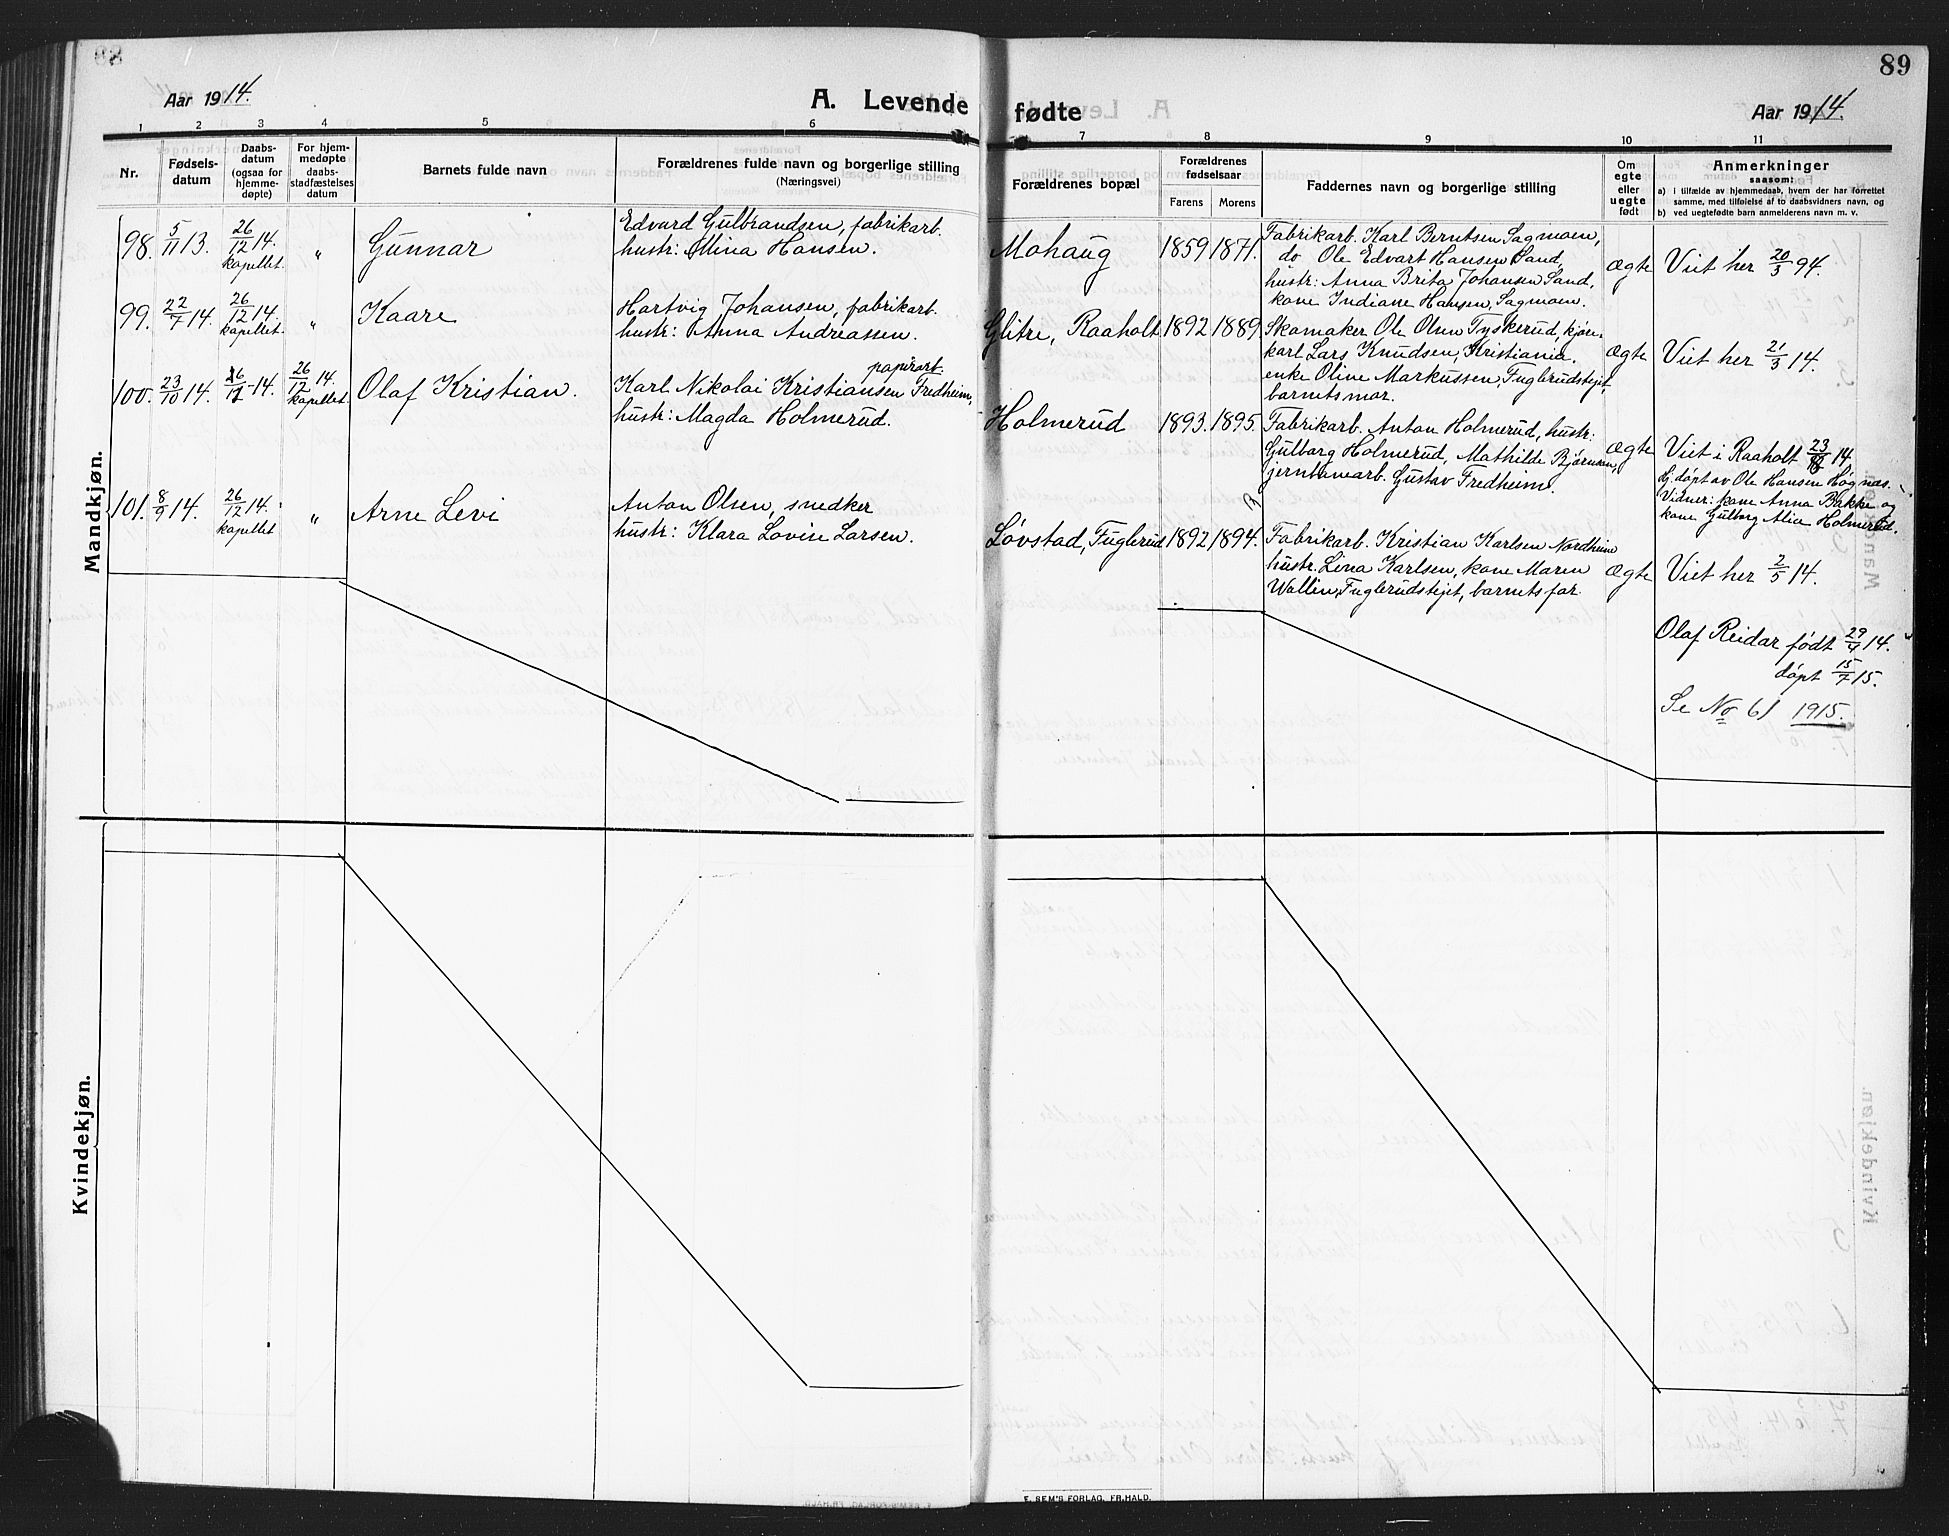 89
Aar 1914.
A. Levende fødte
Aar 1914.
1 2 3 4 5 6 7 8 9 10 11
Nr.
Fødsels-
datum
Daabs-
datum
(ogsaa for
hjemme-
døpte)
For hjem-
medøpte
daabs-
stadfæstelses
datum
Barnets fulde navn
Forældrenes fulde navn og borgerlige stilling
(Næringsvei)
Forældrenes bopæl
Forældrenes
fødselsaar
Farens Morens
Faddernes navn og borgerlige stilling
Om
egte
eller
uegte
født
Anmerkninger
saasom:
a) i tilfælde av hjemmedaab, hvem der har forrettet
samme, med tilføielse af to daabsvidners navn, og
b) ved uegtefødte barn anmelderens navn m. v.
Mandkjøn.
98. 5/11 13. 26/12 14. kapellet. " Gunnar
Edvard Gulbrandsen, fabrikarb.
hustr: Mina Hansen.
Mohaug 1859 1871.
Fabrikarb. Karl Berntsen Sagmoen,
do Ole Edvart Hansen Sand,
hustr: Anna Brita Johansen Sand,
kone Indiane Hansen, Sagmoen.
ægte
Viet her 20/3 94.
99. 22/7 14. 26/12 14. kapellet. " Kaare
Hartvig Johansen, fabrikarb.
hustr: Anna Andreassen.
Glitre, Raaholt 1892 1889
Skomaker Ole Olsen Tyskerud, kjøre-
karl Lars Knudsen, Kristiania.
enke Oline Markussen, Fuglerudstejet,
barnets mor.
ægte
Viet her 21/3 14.
100. 23/10 14. 14. 26/12 14. kapellet Olaf Kristian.
papirarb.
Karl Nikolai Kristiansen Fredheim,
hustr: Magda Holmerud.
Holmerud 1893. 1895.
Fabrikarb. Anton Holmerud, hustr:
Gulborg Holmerud, Mathilde Bjørnsen,
jernbanearb. Gustav Fredheim.
ægte
Viet i Raaholt 14.
Hj. døpt av Ole Hansen Høgnas.
Vidner: kone Anna Bakke og
kone Gulborg Alice Holmerud.
101. 8/9 14. 26/12 14. kapellet " Arne Levi
Anton Olsen, snedker
hustr: Klara Lovise Larsen.
Løvstad, Fuglerud 1892 1894.
Fabrikarb. Kristian Karlsen Nordheim
hustr. Lina Karlsen, kone Maren
Wallin, Fuglerudstejet, barnets far.
ægte
Viet her 2/5 14.
Olaf Reidar født 29/4 14.
døpt 15/7 15.
Se No 61 1915.
Kvindekjøn.
E. SEM'S FORLAG, FR.HALD.